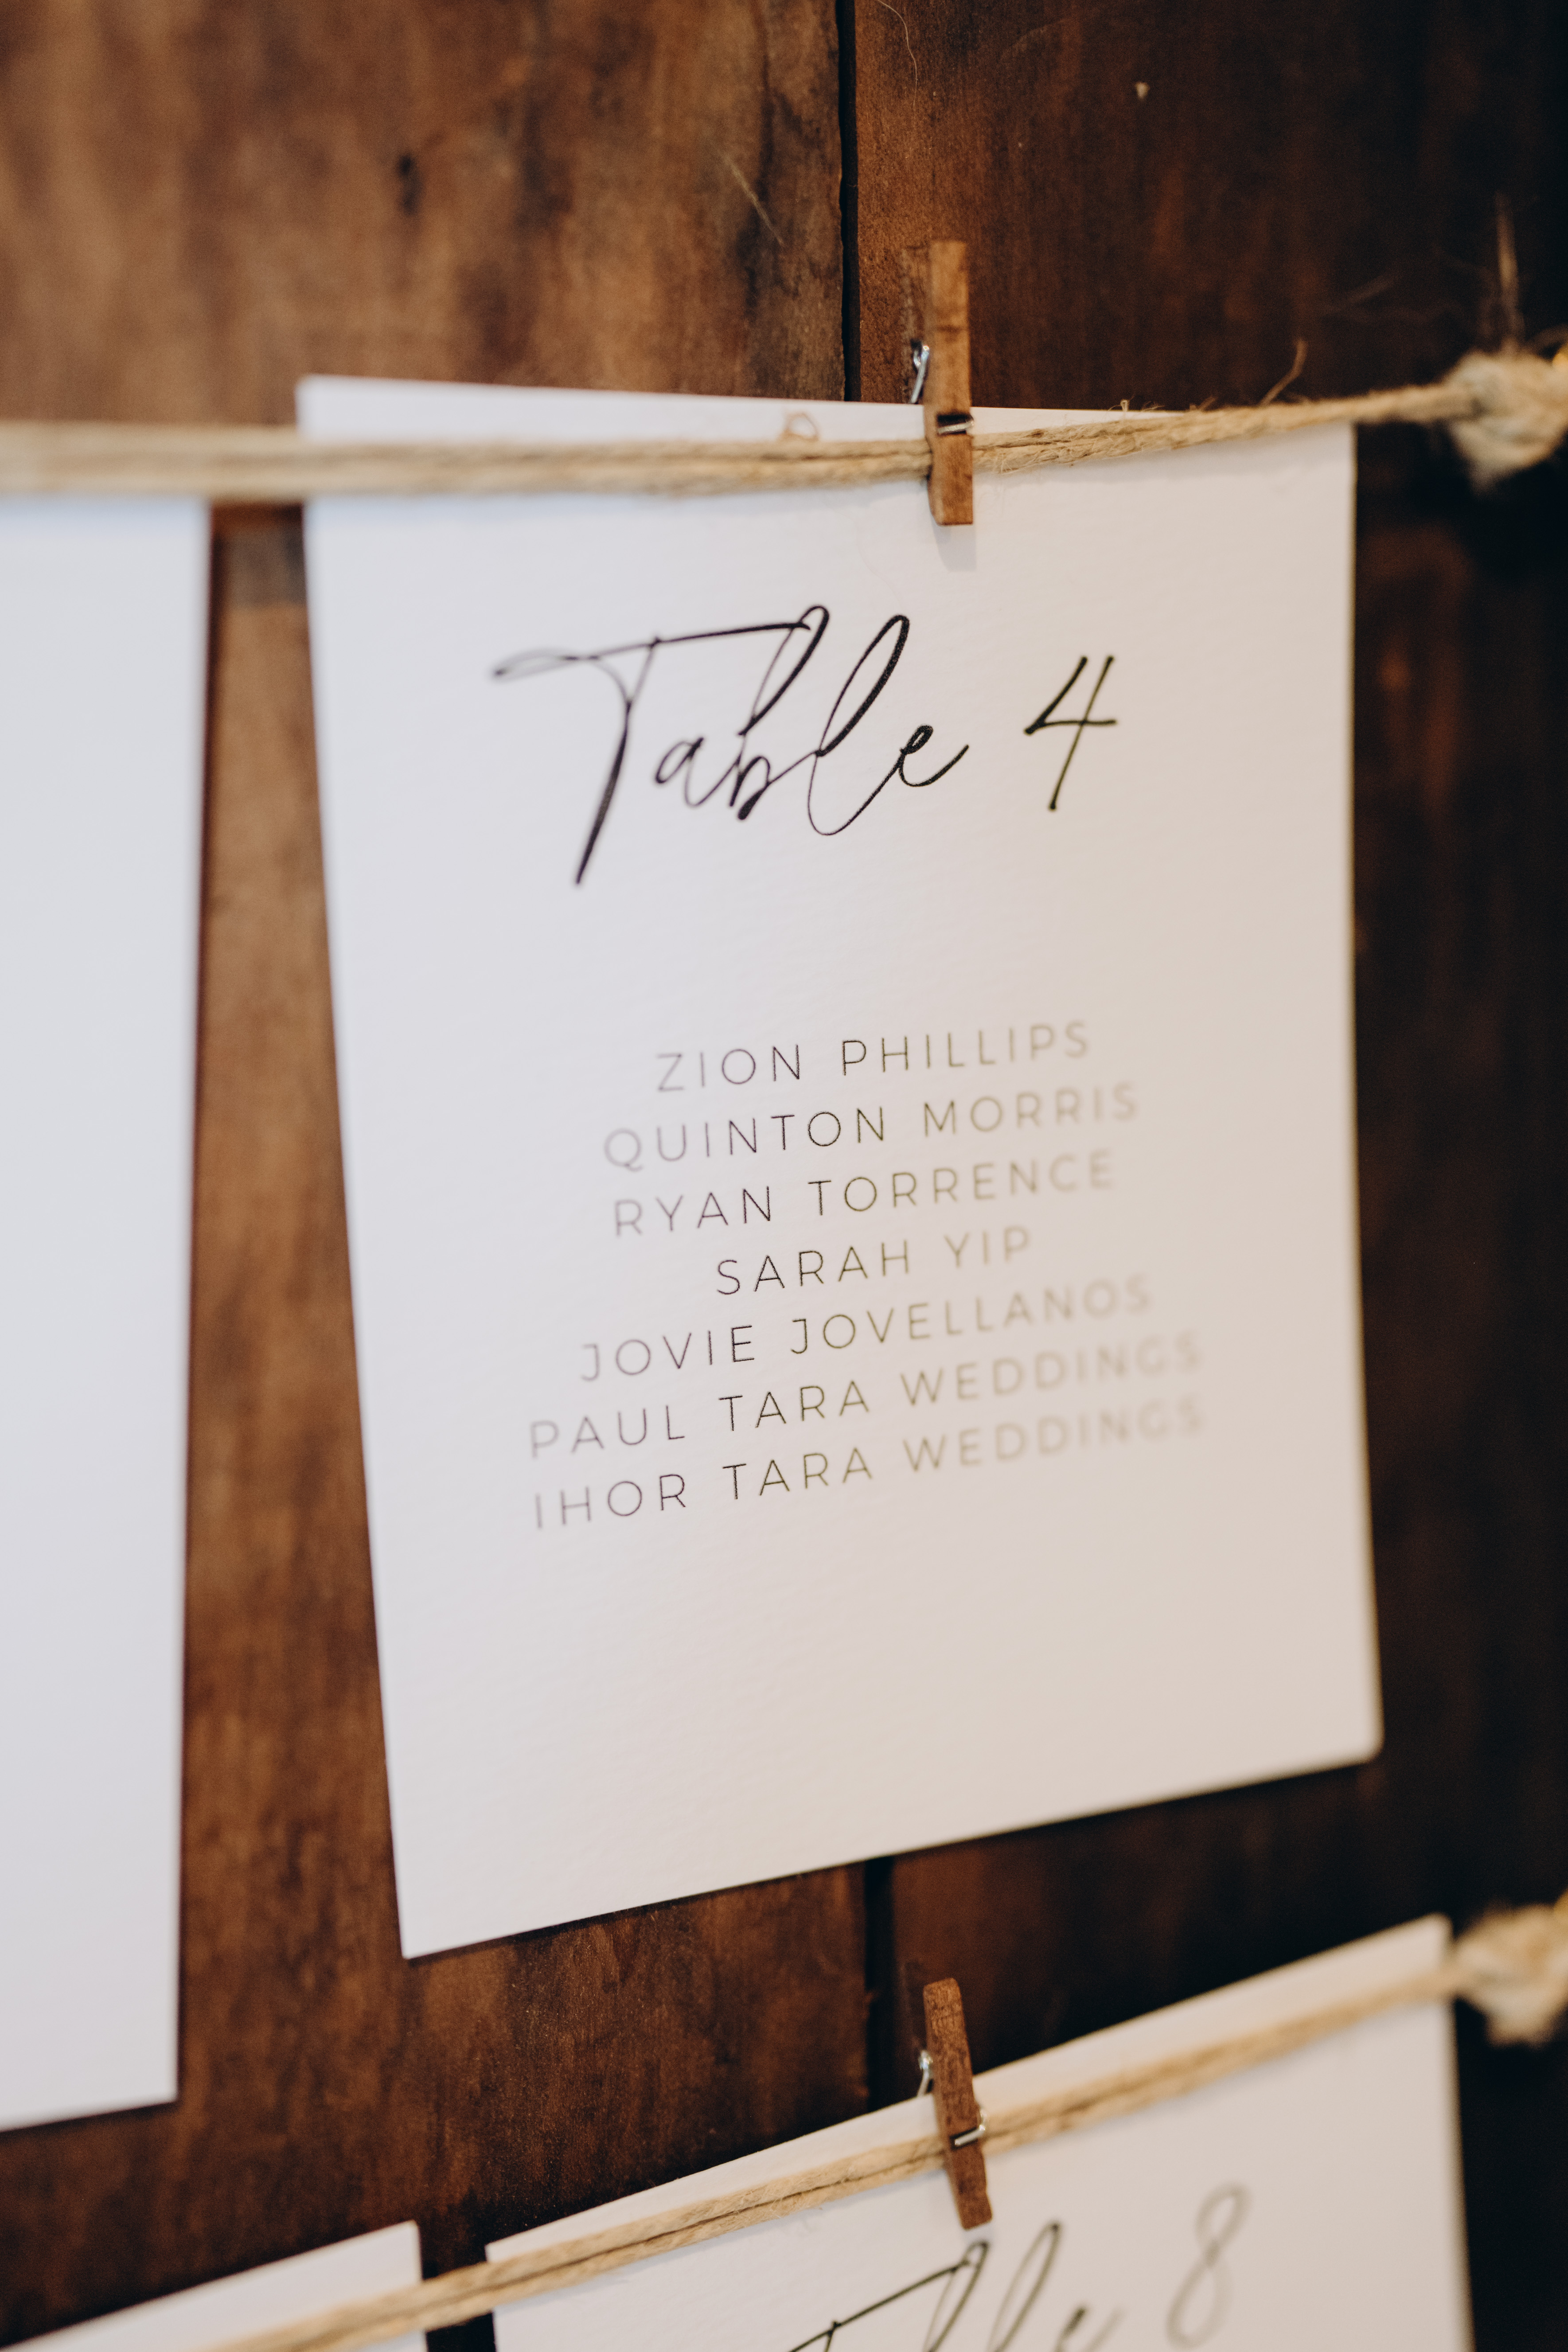 Table 4
ZION PHILLIPS
QUINTON MORRIS
RYAN TORRENCE
SARAH YIP
JOVIE JOVELLANOS
PAUL TARA WEDDINGS
IHOR TARA WEDDINGS
Table 8